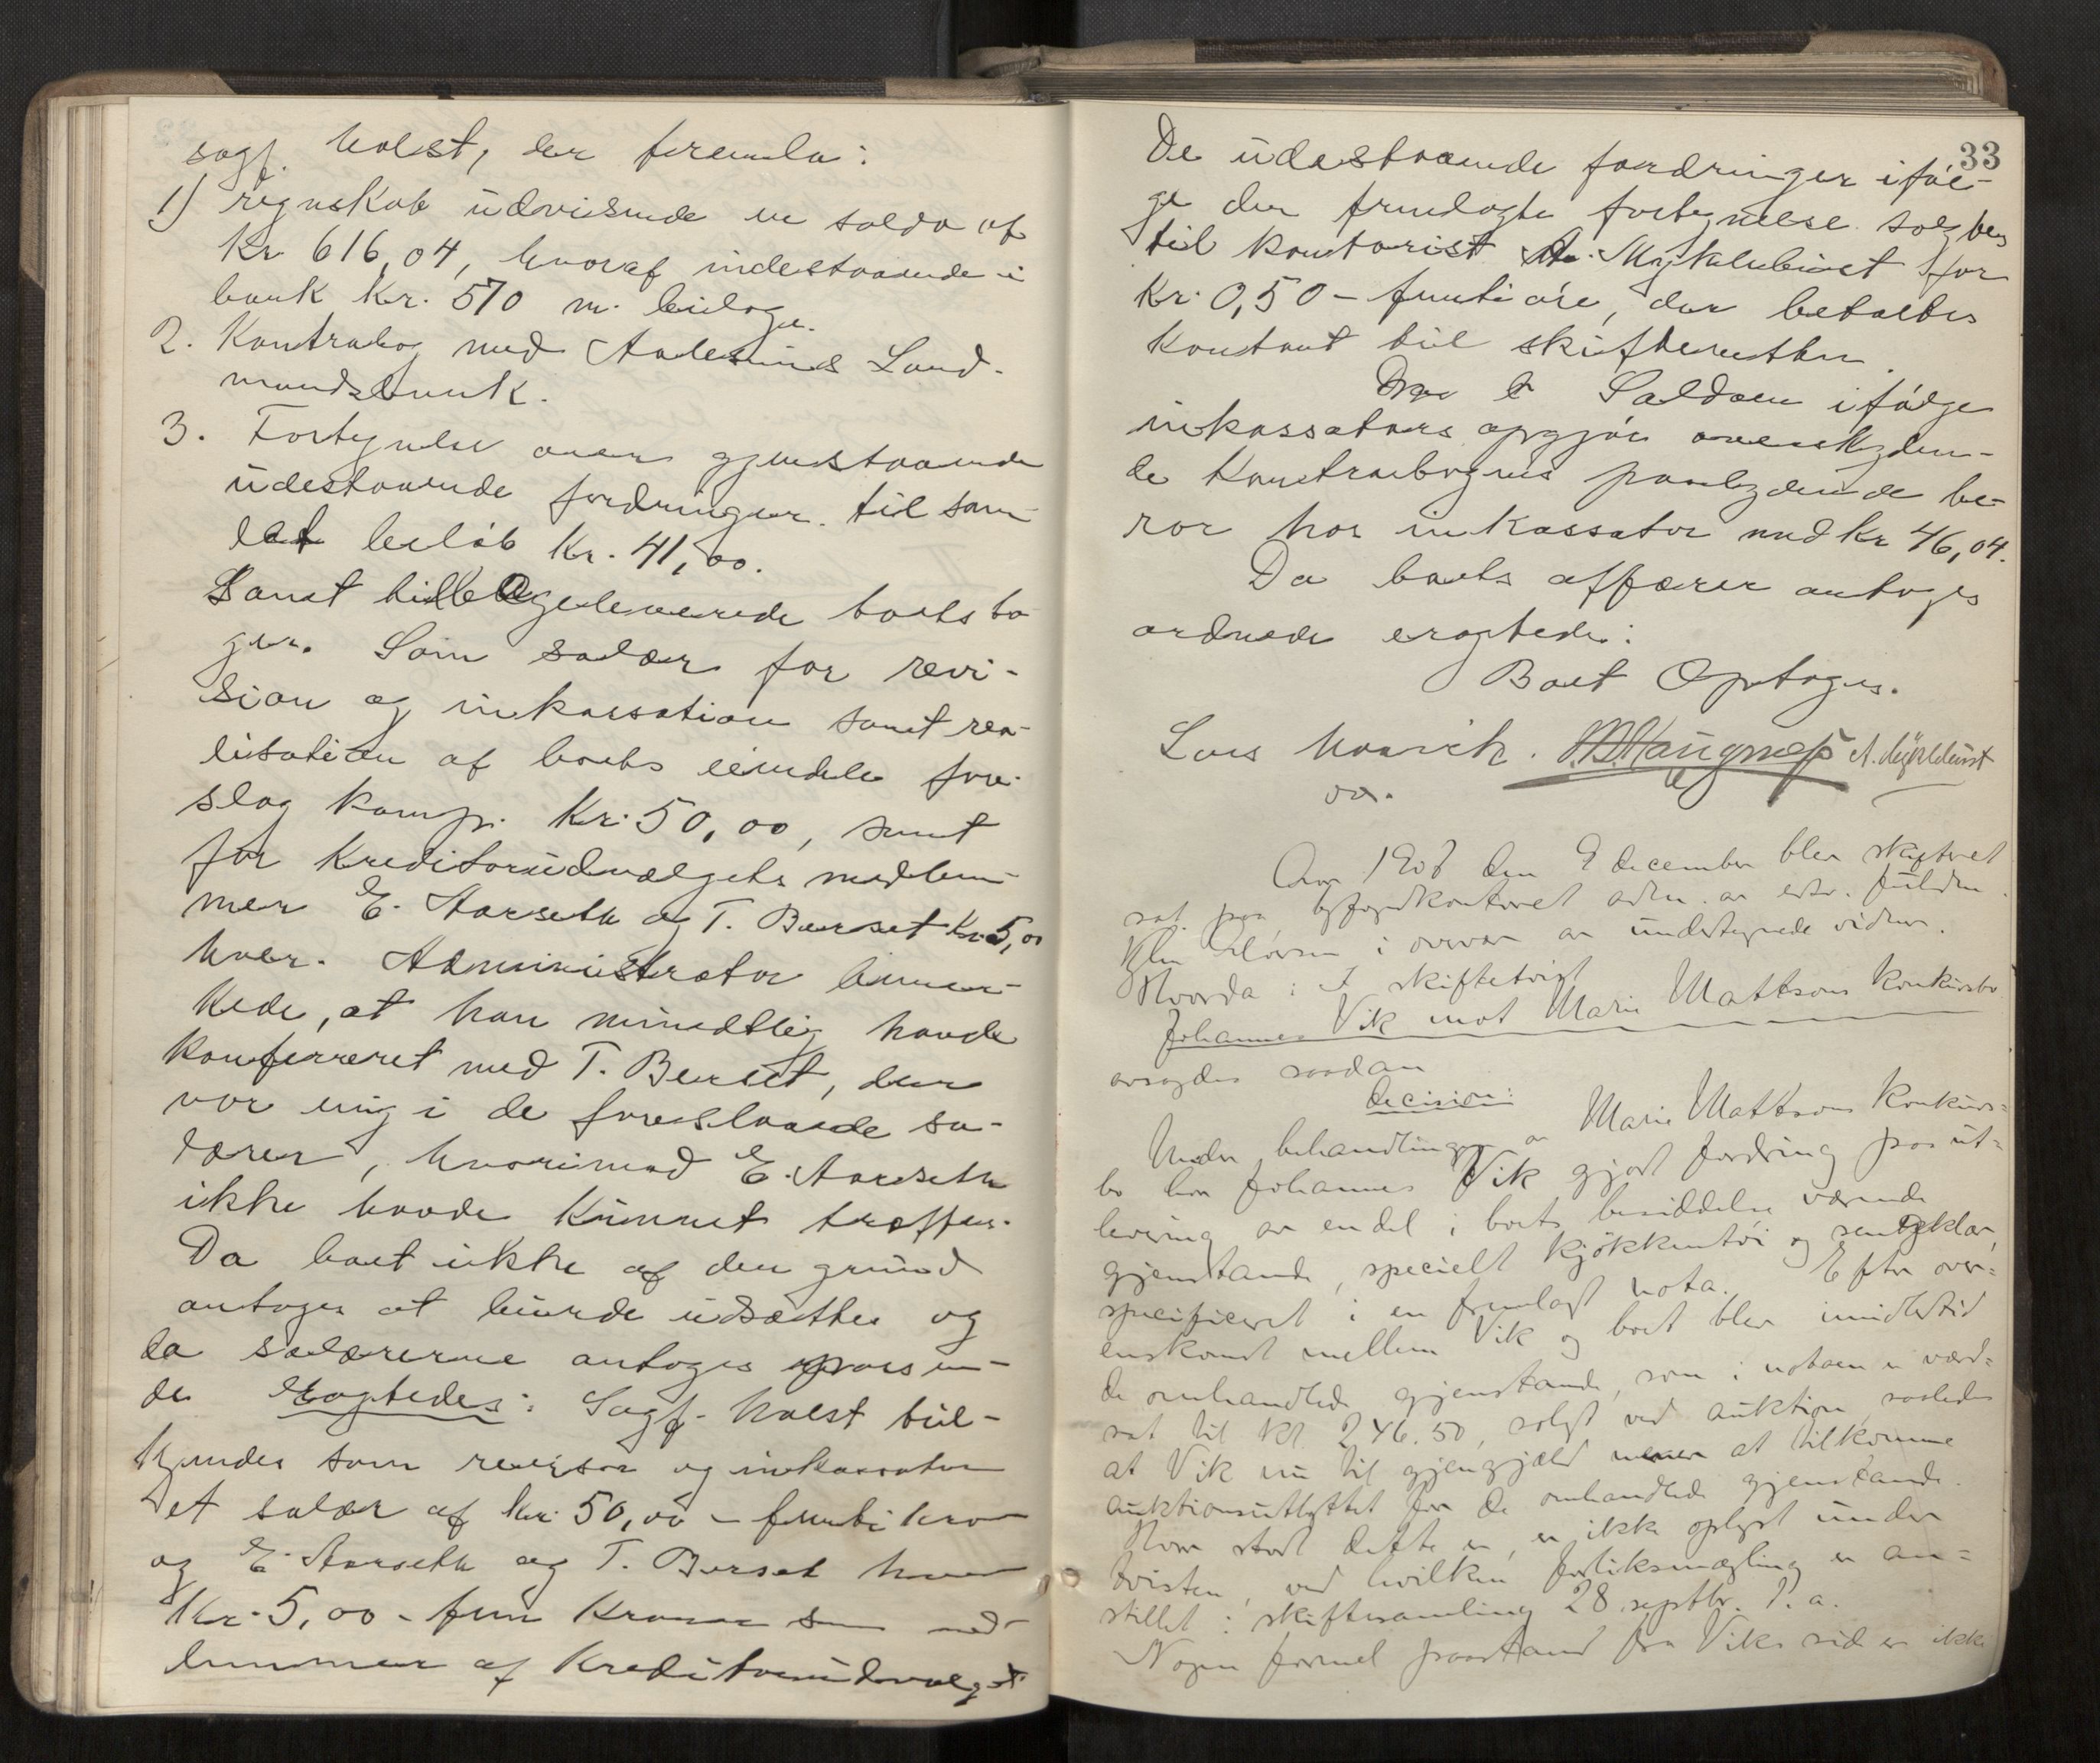 sagf. Holst, der fremla:
1) regnskab udvisende en saldo af
Kr 616,04, hvoraf indestaaende i
bank Kr. 570 m. bilage.
2. Kontrabog med Aalesunds Land-
mandsbank.
3. Fortegnelse over gjenstaaende
udestaaende fordringer til sam-
let beløb Kr. 41,00.
Samt tilbageleverede boets bø-
ger. Som salær for revi-
sion og inkassation samt rea-
lisation af boets eiendele fore-
slog komp. Kr. 50,00, samt
for Kreditorudvalgets medlem-
mer E. Aarseth og T. Berset Kr. 5,00
hver. Administrator bemær-
kede, at han mundtlig havde
konfereret med T. Berset, der
var enig i de foreslaaede sa-
lærer, hvorimod E. Aarseth
ikke havde kunnet træffes.
Da boet ikke af den grund
antoges at burde udsættes og
da salærerne antoges passen-
de Eragtedes: Sagf. Holst til-
kjendes som revisor og inkassator
et salær af kr. 50,00 - femti kro
og E. Aarseth og T. Berset hver
Kr. 5,00 - fem Kroner som med-
lemmer af Kreditorudvalget.
33
De udestaaende fordringer iføl-
ge den fremlagte fortegnelse solgtes
til kontorist A. Myklebust for
Kr. 0,50 - femti øre, der betaltes
kontant til skifteretten.
Saldoen ifølge
inkassators opgjør overskyden-
de Kontrabogens paalydende be-
ror hos inkassator med kr 46,04.
Da boets affærer antoges
ordnede eragtedes:
Boet Optages.
Lars Maarik. A. Myklebust
Aar 1908 den 9 december blev skifteret
sat paa byfogdkontoret adm. av edsv. fuldm.
i overvær av undertegnede vidner.
Hvorda: I skiftetvist
Johannes Vik mot Marie Mattsons Konkursbo
avsagdes saadan
decision:
Under behandlingen av Marie Mattsons Konkurs-
bo har Johannes Vik gjort fordring paa ut-
levering av en del i boets besiddelse værende
gjenstande, specielt kjøkkentøi og sengeklær,
specificeret i en fremlagt nota. Efter over-
enskomst mellem Vik og boet blev imidlertid
de omhandlede gjenstande, som i notaen er værd-
sat til kr. 246.50, solgt ved auktion, saaledes
at Vik nu til gjengjæld mener at tilkomme
auktionsutbyttet for de omhandlede gjenstande.
Hvor stort dette er, er ikke oplyst under
tvisten, ved hvilken forliksmægling er an-
stillet i skiftesamling 28 septbr. d. a.
Nogen formel paastand fra Viks side er ikke